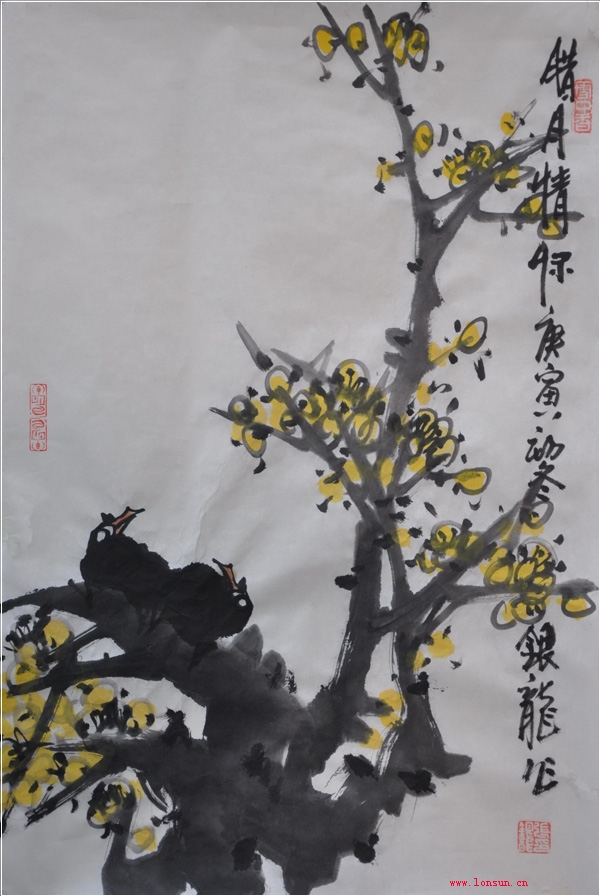 腊月情怀 庚寅初冬 銀龍作
www.lonsun.cn